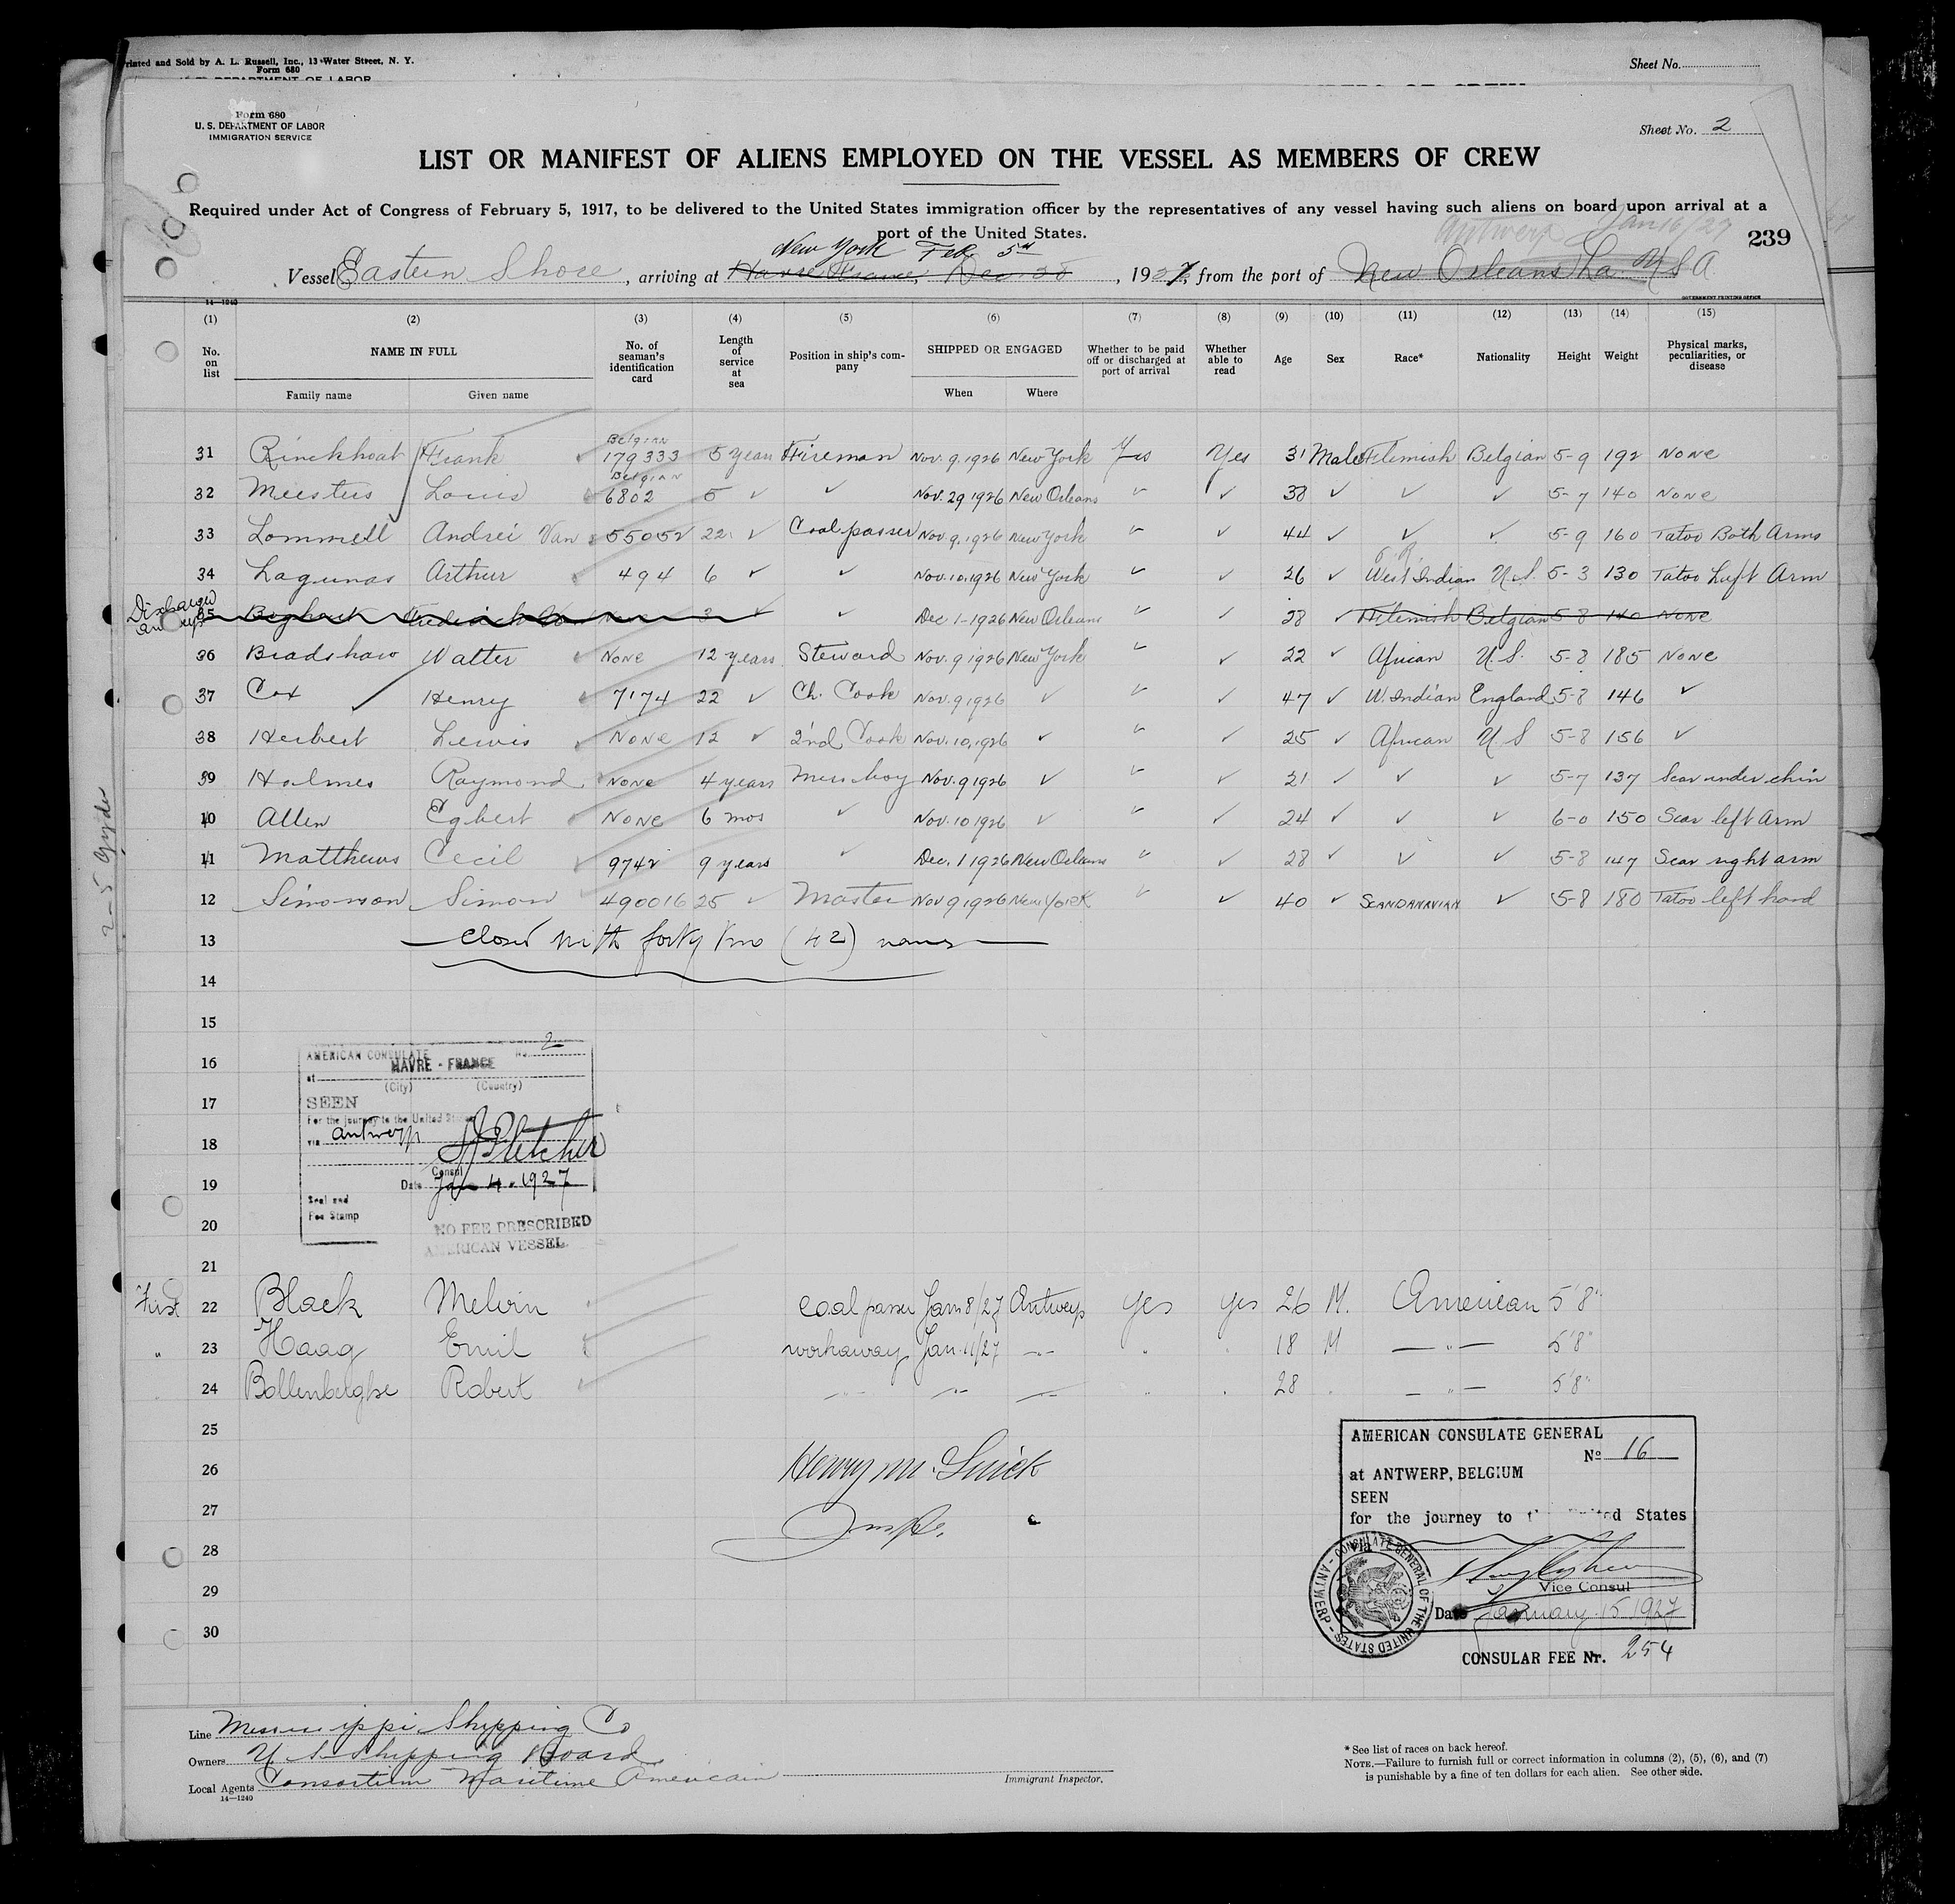 Printed and Sold by A. L. Russell, Inc., 13 Water Street, N. Y.
Form 680
Sheet No.
Form 680
U. S. DEPARTMENT OF LABOR
IMMIGRATION SERVICE
Sheet No. 2
LIST OR MANIFEST OF ALIENS EMPLOYED ON THE VESSEL AS MEMBERS OF CREW
Required under Act of Congress of February 5, 1917, to be delivered to the United States immigration officer by the representatives of any vessel having such aliens on board upon arrival at a
port of the United States.
Antwerp Jan 16/27
239
New York Feb 5th
Vessel Eastern Shore, arriving at Havre France, Dec 28, 1927, from the port of New Orleans La. U S A
14—1240
GOVERNMENT PRINTING OFFICE
(1) (2) (3) (4) (5) (6) (7) (8) (9) (10) (11) (12) (13) (14) (15)
No. on list
NAME IN FULL
Family name
Given name
No. of seaman's identification card
Length of service at sea
Position in ship's company
SHIPPED OR ENGAGED
When
Where
Whether to be paid off or discharged at port of arrival
Whether able to read
Age
Sex
Race*
Nationality
Height
Weight
Physical marks, peculiarities, or disease
31 Rinckhoat Frank Belgian 179333 5 years Fireman Nov. 9. 1926 New York Yes Yes 31 Male Flemish Belgian 5-9 192 None
32 Meestus Louis Belgian 6802 5 ✓ ✓ Nov. 29 1926 New Orleans ✓ ✓ 38 ✓ ✓ ✓ 5-7 140 None
33 Lommell Andrei Van 55052 22 ✓ Coal passer Nov. 9. 1926 New York ✓ ✓ 44 ✓ ✓ ✓ 5-9 160 Tatoo Both Arms
34 Lagunas Arthur 494 6 ✓ ✓ Nov. 10. 1926 New York ✓ ✓ 26 ✓ West Indian U.S. 5-3 130 Tatoo Left Arm
35 ✓ Dec 1-1926 New Orleans ✓ ✓ 28 ✓ Flemish Belgian 5-8 140 None
36 Bradshaw Walter None 12 years Steward Nov. 9 1926 New York ✓ ✓ 22 ✓ African U.S. 5-8 185 None
37 Cox Henry 7174 22 ✓ Ch. Cook Nov. 9 1926 ✓ ✓ ✓ 47 ✓ W. Indian England 5-8 146 ✓
38 Herbert Lewis None 12 ✓ 2nd Cook Nov. 10, 1926 ✓ ✓ ✓ 25 ✓ African U S 5-8 156 ✓
39 Holmes Raymond None 4 years Mess boy Nov. 9 1926 ✓ ✓ ✓ 21 ✓ ✓ ✓ 5-7 137 Scar under chin
10 Allen Egbert None 6 mos ✓ Nov. 10 1926 ✓ ✓ ✓ 24 ✓ ✓ ✓ 6-0 150 Scar left Arm
11 Matthews Cecil 9742 9 years ✓ Dec. 1 1926 New Orleans ✓ ✓ 28 ✓ ✓ ✓ 5-8 147 Scar right arm
12 Simonson Simon 490016 25 ✓ Master Nov 9 1926 New York ✓ ✓ 40 ✓ Scandanavian ✓ 5-8 180 Tatoo left hand
13 Closed with forty two (42) names
14
15
16
17
18
19
20
21
AMERICAN CONSULATE No. 2
at HAVRE - FRANCE
(City) (Country)
SEEN
For the journey to the United States
via Antwerp
Consul
Date Jan 4. 1927
Seal and
Fee Stamp
NO FEE PRESCRIBED
AMERICAN VESSEL
First 22 Black Melvin coal passer Jan 8/27 Antwerp yes yes 26 M. American 5'8"
" 23 Haag Emil workaway Jan. 11/27 —"— " " 18 M —"— 5'8"
24 Bollenberghe Robert —"— —"— —"— " " 28 " —"— 5'8"
25
26
27
28
29
30
AMERICAN CONSULATE GENERAL
No 16
at ANTWERP, BELGIUM
SEEN
for the journey to the United States
via
Vice Consul
Date January 15 1927
CONSULATE GENERAL OF THE UNITED STATES - ANTWERP -
CONSULAR FEE Nr. 254
Line Mississippi Shipping Co
Owners U S Shipping Board
Local Agents Consortium Maritime Americain
14—1240
Immigrant Inspector.
* See list of races on back hereof.
NOTE.—Failure to furnish full or correct information in columns (2), (5), (6), and (7)
is punishable by a fine of ten dollars for each alien. See other side.